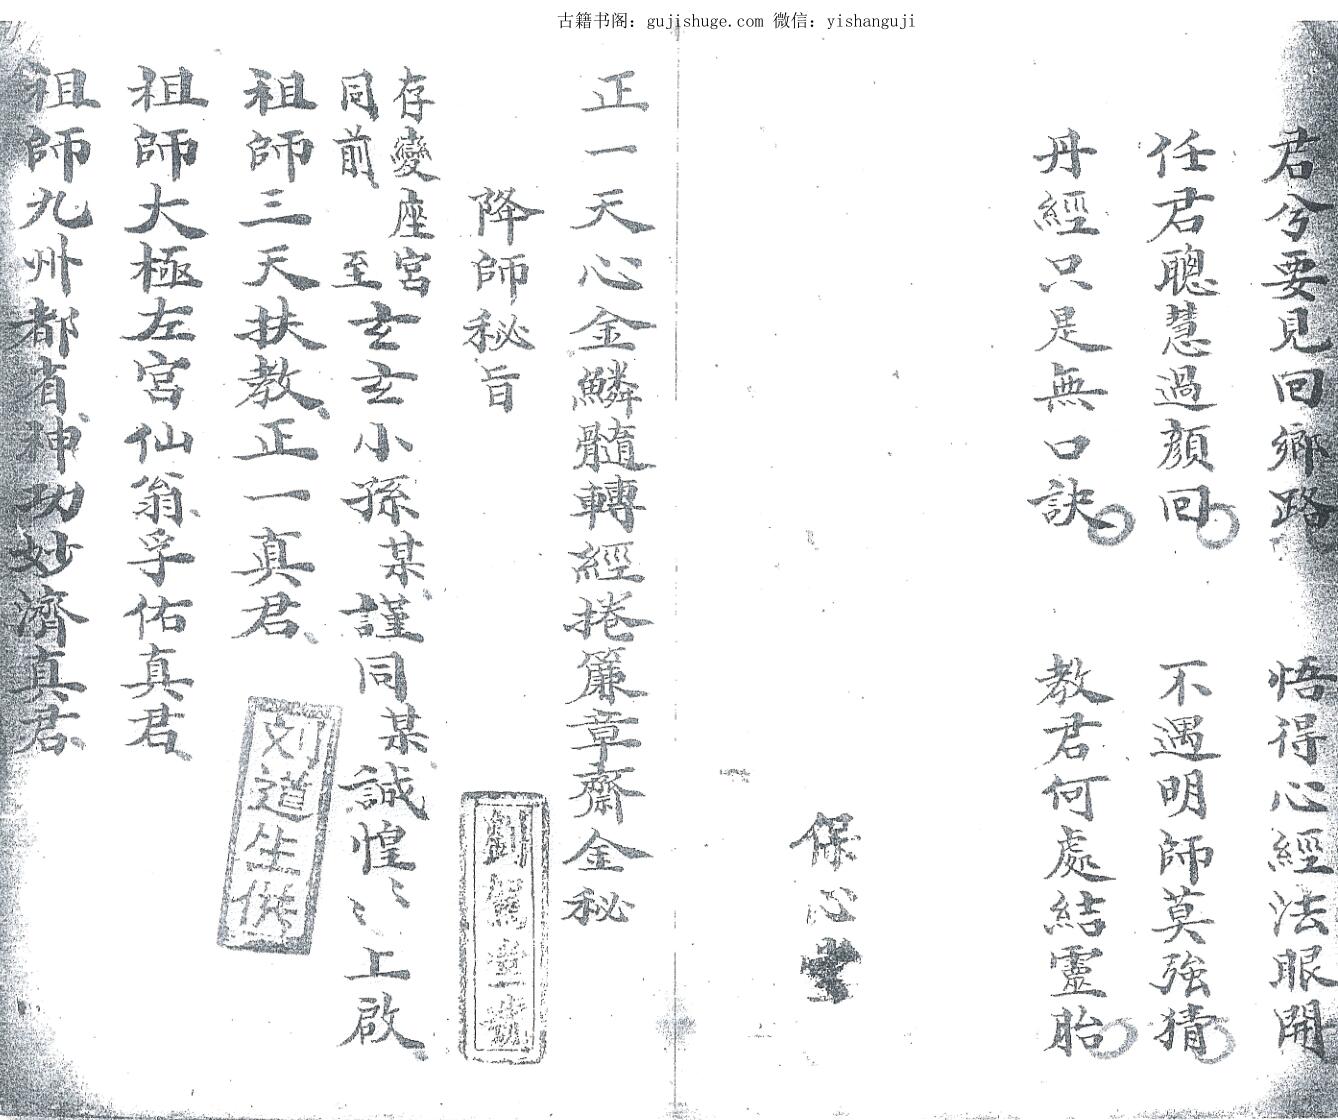 古籍书阁：gujishuge.com 微信：yishanguji
君兮要見回鄉路　悟得心經法眼開
任君聰慧過顏回　不遇明師莫強猜
丹經只是無口訣　教君何處結靈胎
保心堂
正一天心金鱗髓轉經捲簾章齋金秘
降師秘旨
存變座宮
同前　至玄玄小孫某謹同某誠惶〻〻上啟
祖師三天扶教正一真君
祖師大極左宮仙翁孚佑真君
祖師九州都省神功妙濟真君
刘道生供